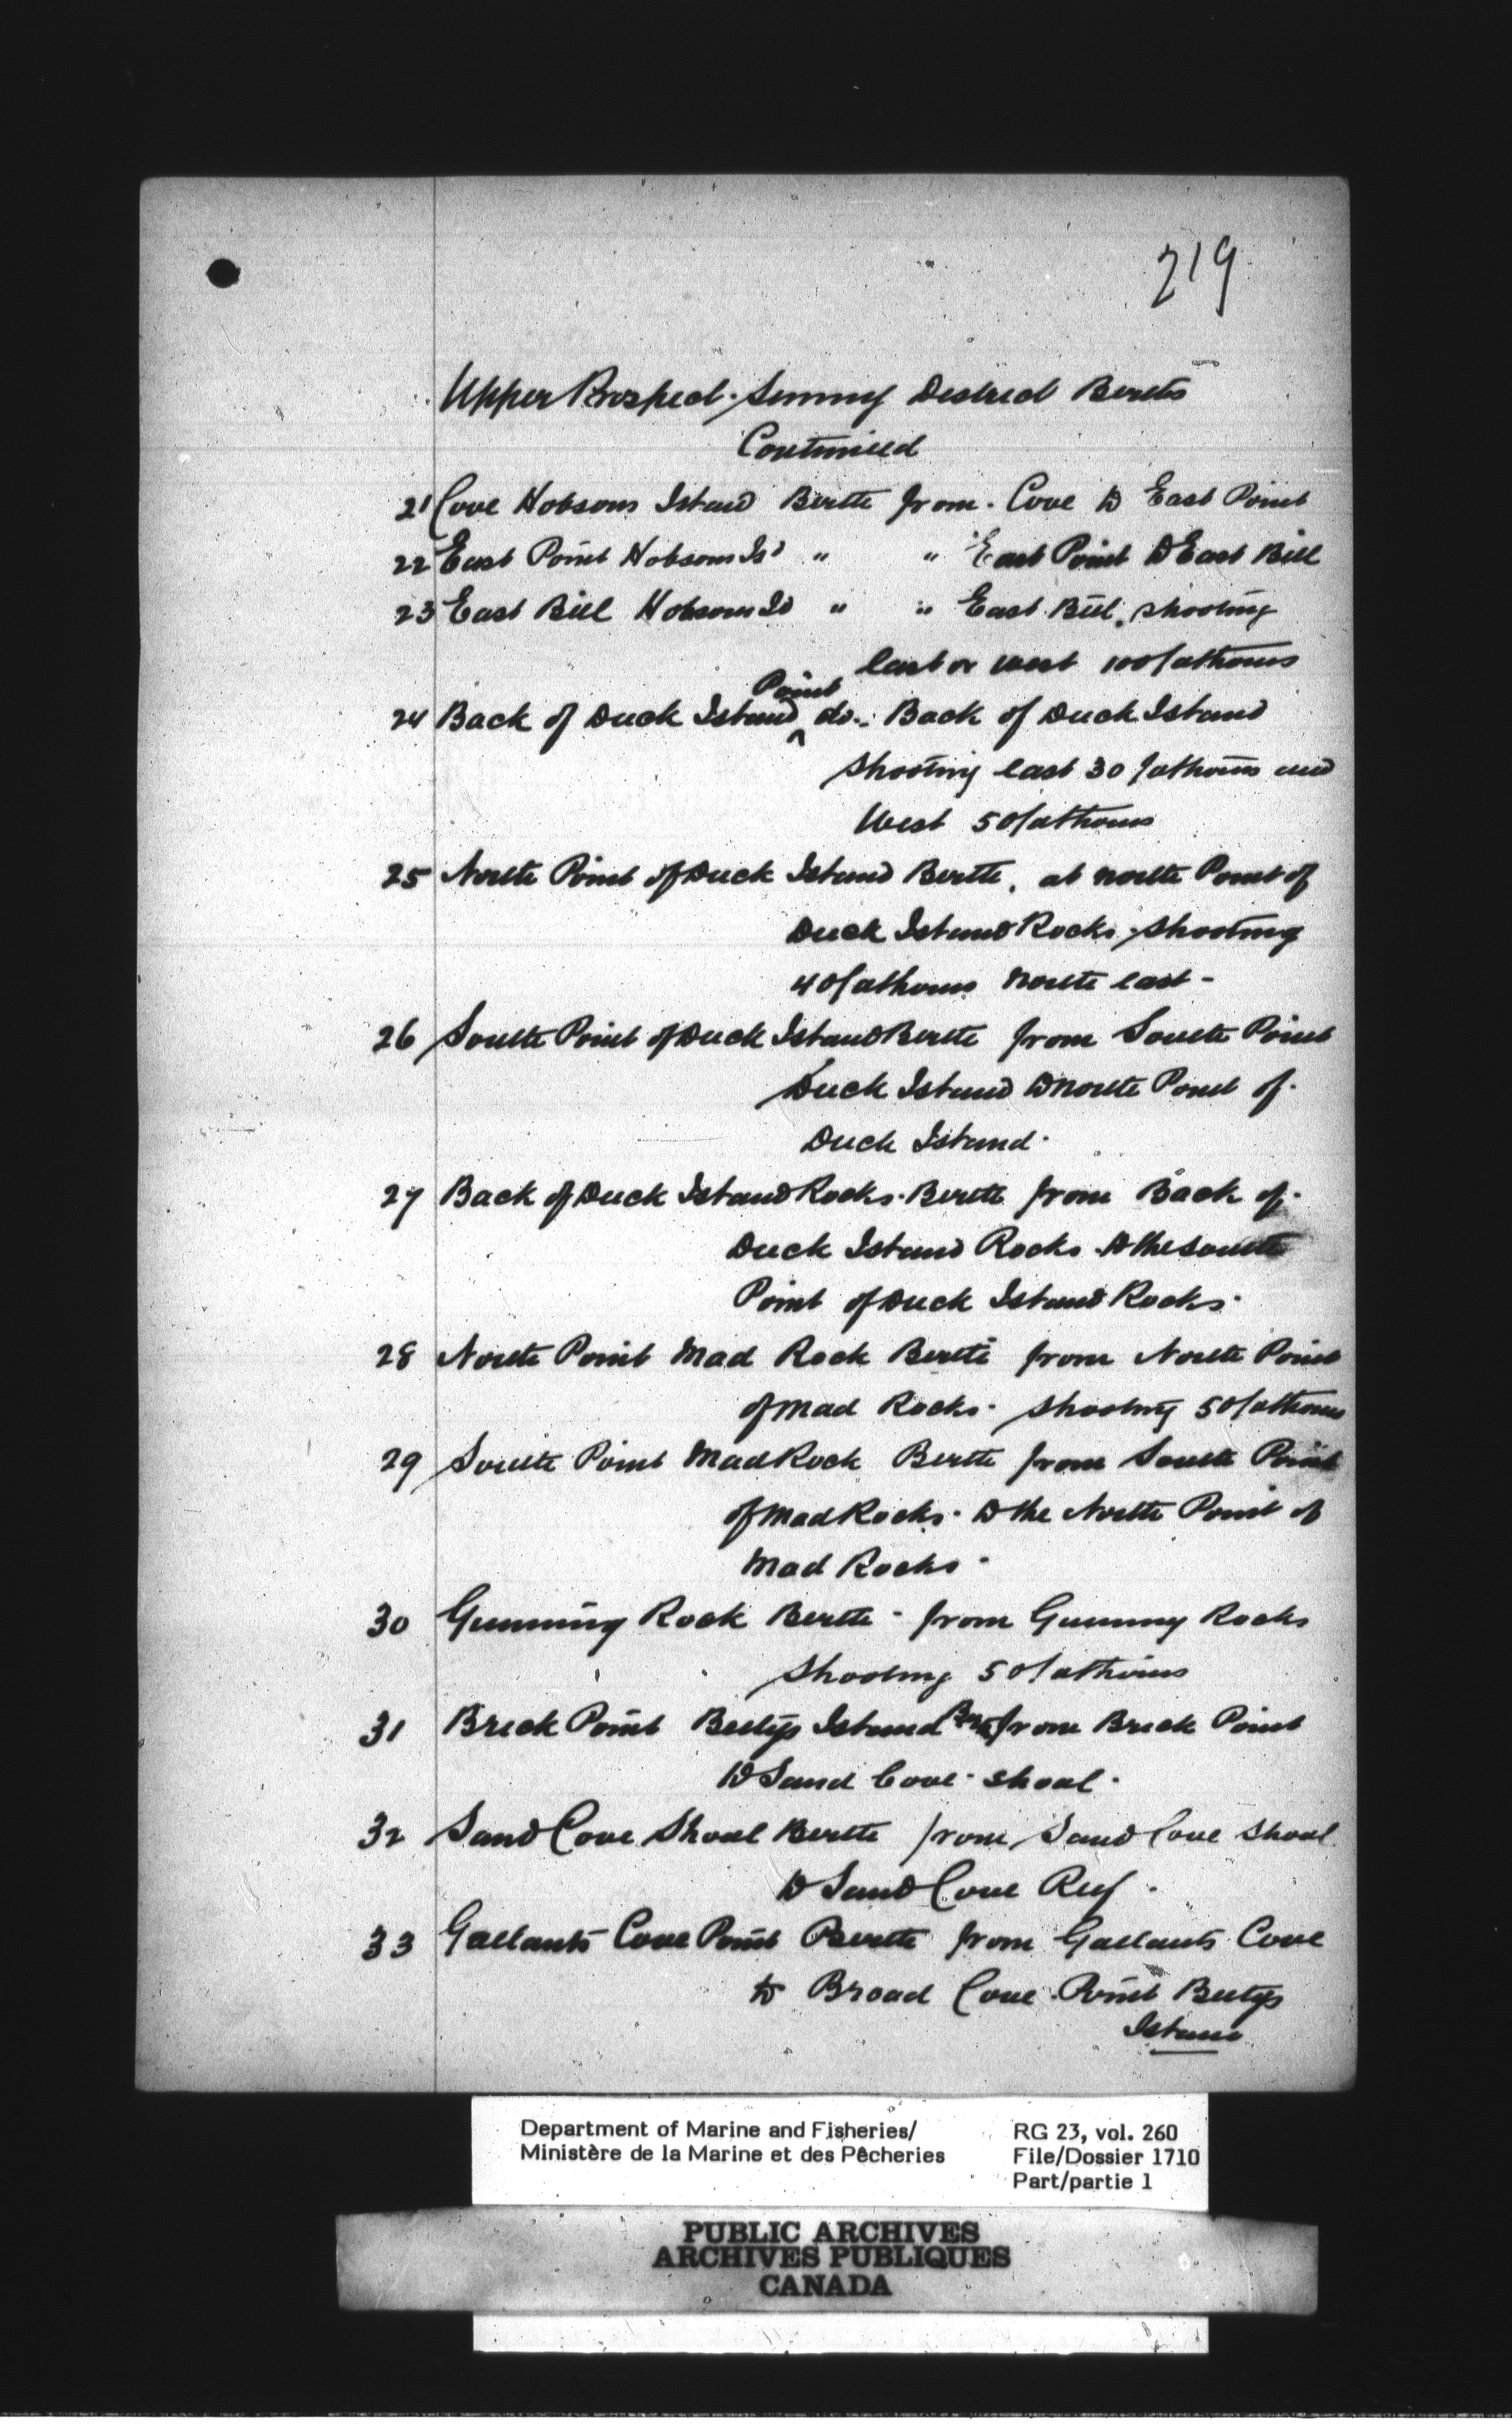 219
Upper Prospect. Seining District Berths
Continued
21 Cove Hobsons Island Berth from. Cove to East Point
22 East Point Hobsons Isd " " East Point to East Bill
23 East Bill Hobsons Id " " East Bill. shooting
East or West 100 fathoms
Point
24 Back of Duck Island ^ do.. Back of Duck Island
Shooting East 30 fathoms and
West 50 fathoms
25 North Point of Duck Island Berth. at North Point of
Duck Island Rocks. Shooting
40 fathoms North East -
26 South Point of Duck Island Berth from South Point
Duck Island to North Point of.
Duck Island.
27 Back of Duck Island Rocks. Berth from Back of.
Duck Island Rocks to the South
Point of Duck Island Rocks.
28 North Point Mad Rock Berth from North Point
of Mad Rocks. Shooting 50 fathoms
29 South Point Mad Rock Berth from South Point
of Mad Rocks. to the North Point of
Mad Rocks.
30 Gunning Rock Berth - from Gunning Rocks
Shooting 50 fathoms
31 Brick Point Betys Island from Brick Point
to Sand Cove. Shoal.
32 Sand Cove Shoal Berth from Sand Cove Shoal
to Sand Cove Reef.
33 Gallants Cove Point Berth from Gallants Cove
to Broad Cove. Point Betys
Island
Department of Marine and Fisheries/ RG 23, vol. 260
Ministère de la Marine et des Pêcheries File/Dossier 1710
Part/partie 1
PUBLIC ARCHIVES
ARCHIVES PUBLIQUES
CANADA